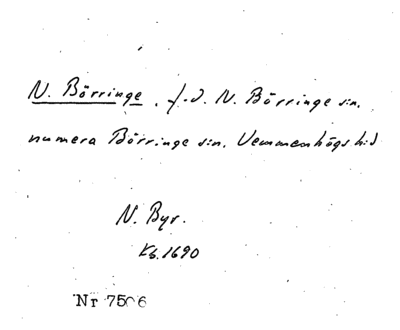 N. Börringe, f.d. N. Börringe sn.
numera Börringe sn. Vemmenhögs hd
N. Byr.
Kb. 1690
Nr 7506